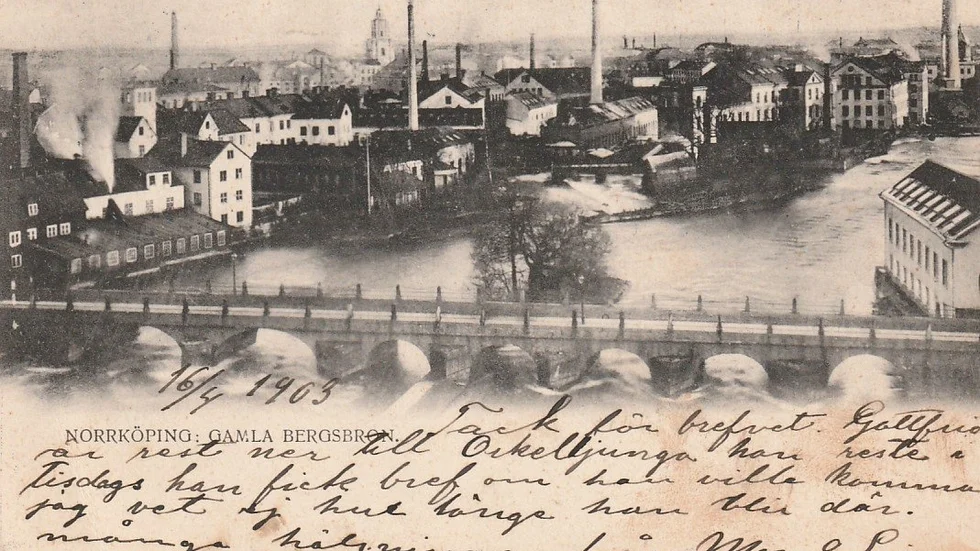 16/4 1903
NORRKÖPING: GAMLA BERGSBRON.
Tack för brefvet. Gottfrid
är rest ner till Örkelljunga han reste i
Tisdags han fick bref om han ville komma
jag vet ej hur länge han blir där.
många hälsningar från